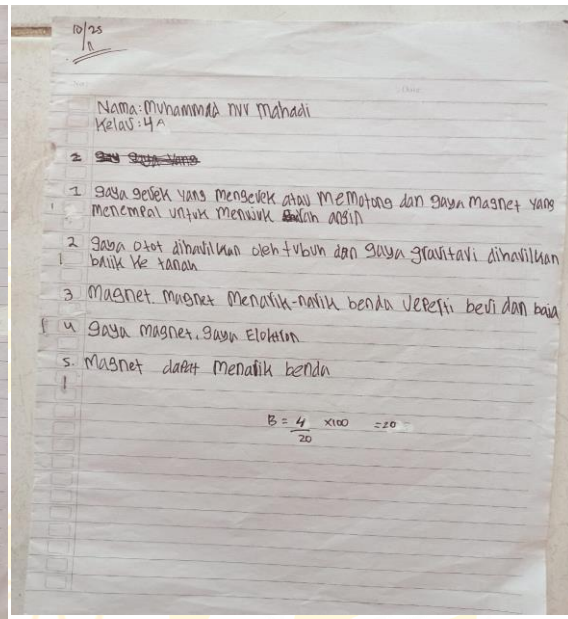 10/25
11
Nama: Muhammad nur mahadi
Kelas: 4A
2
1 gaya gesek yang mengesek atau memotong dan gaya magnet yang
1 menempal untuk menujuk arah angin
2 gaya otot dihasilkan oleh tubuh dan gaya gravitasi dihasilkan
1 balik ke tanah
3 magnet magnet menarik-narik benda seperti besi dan baja
1 4 gaya magnet, gaya Elektron
5. magnet dapat menarik benda
1
B = 4 x100 =20
20